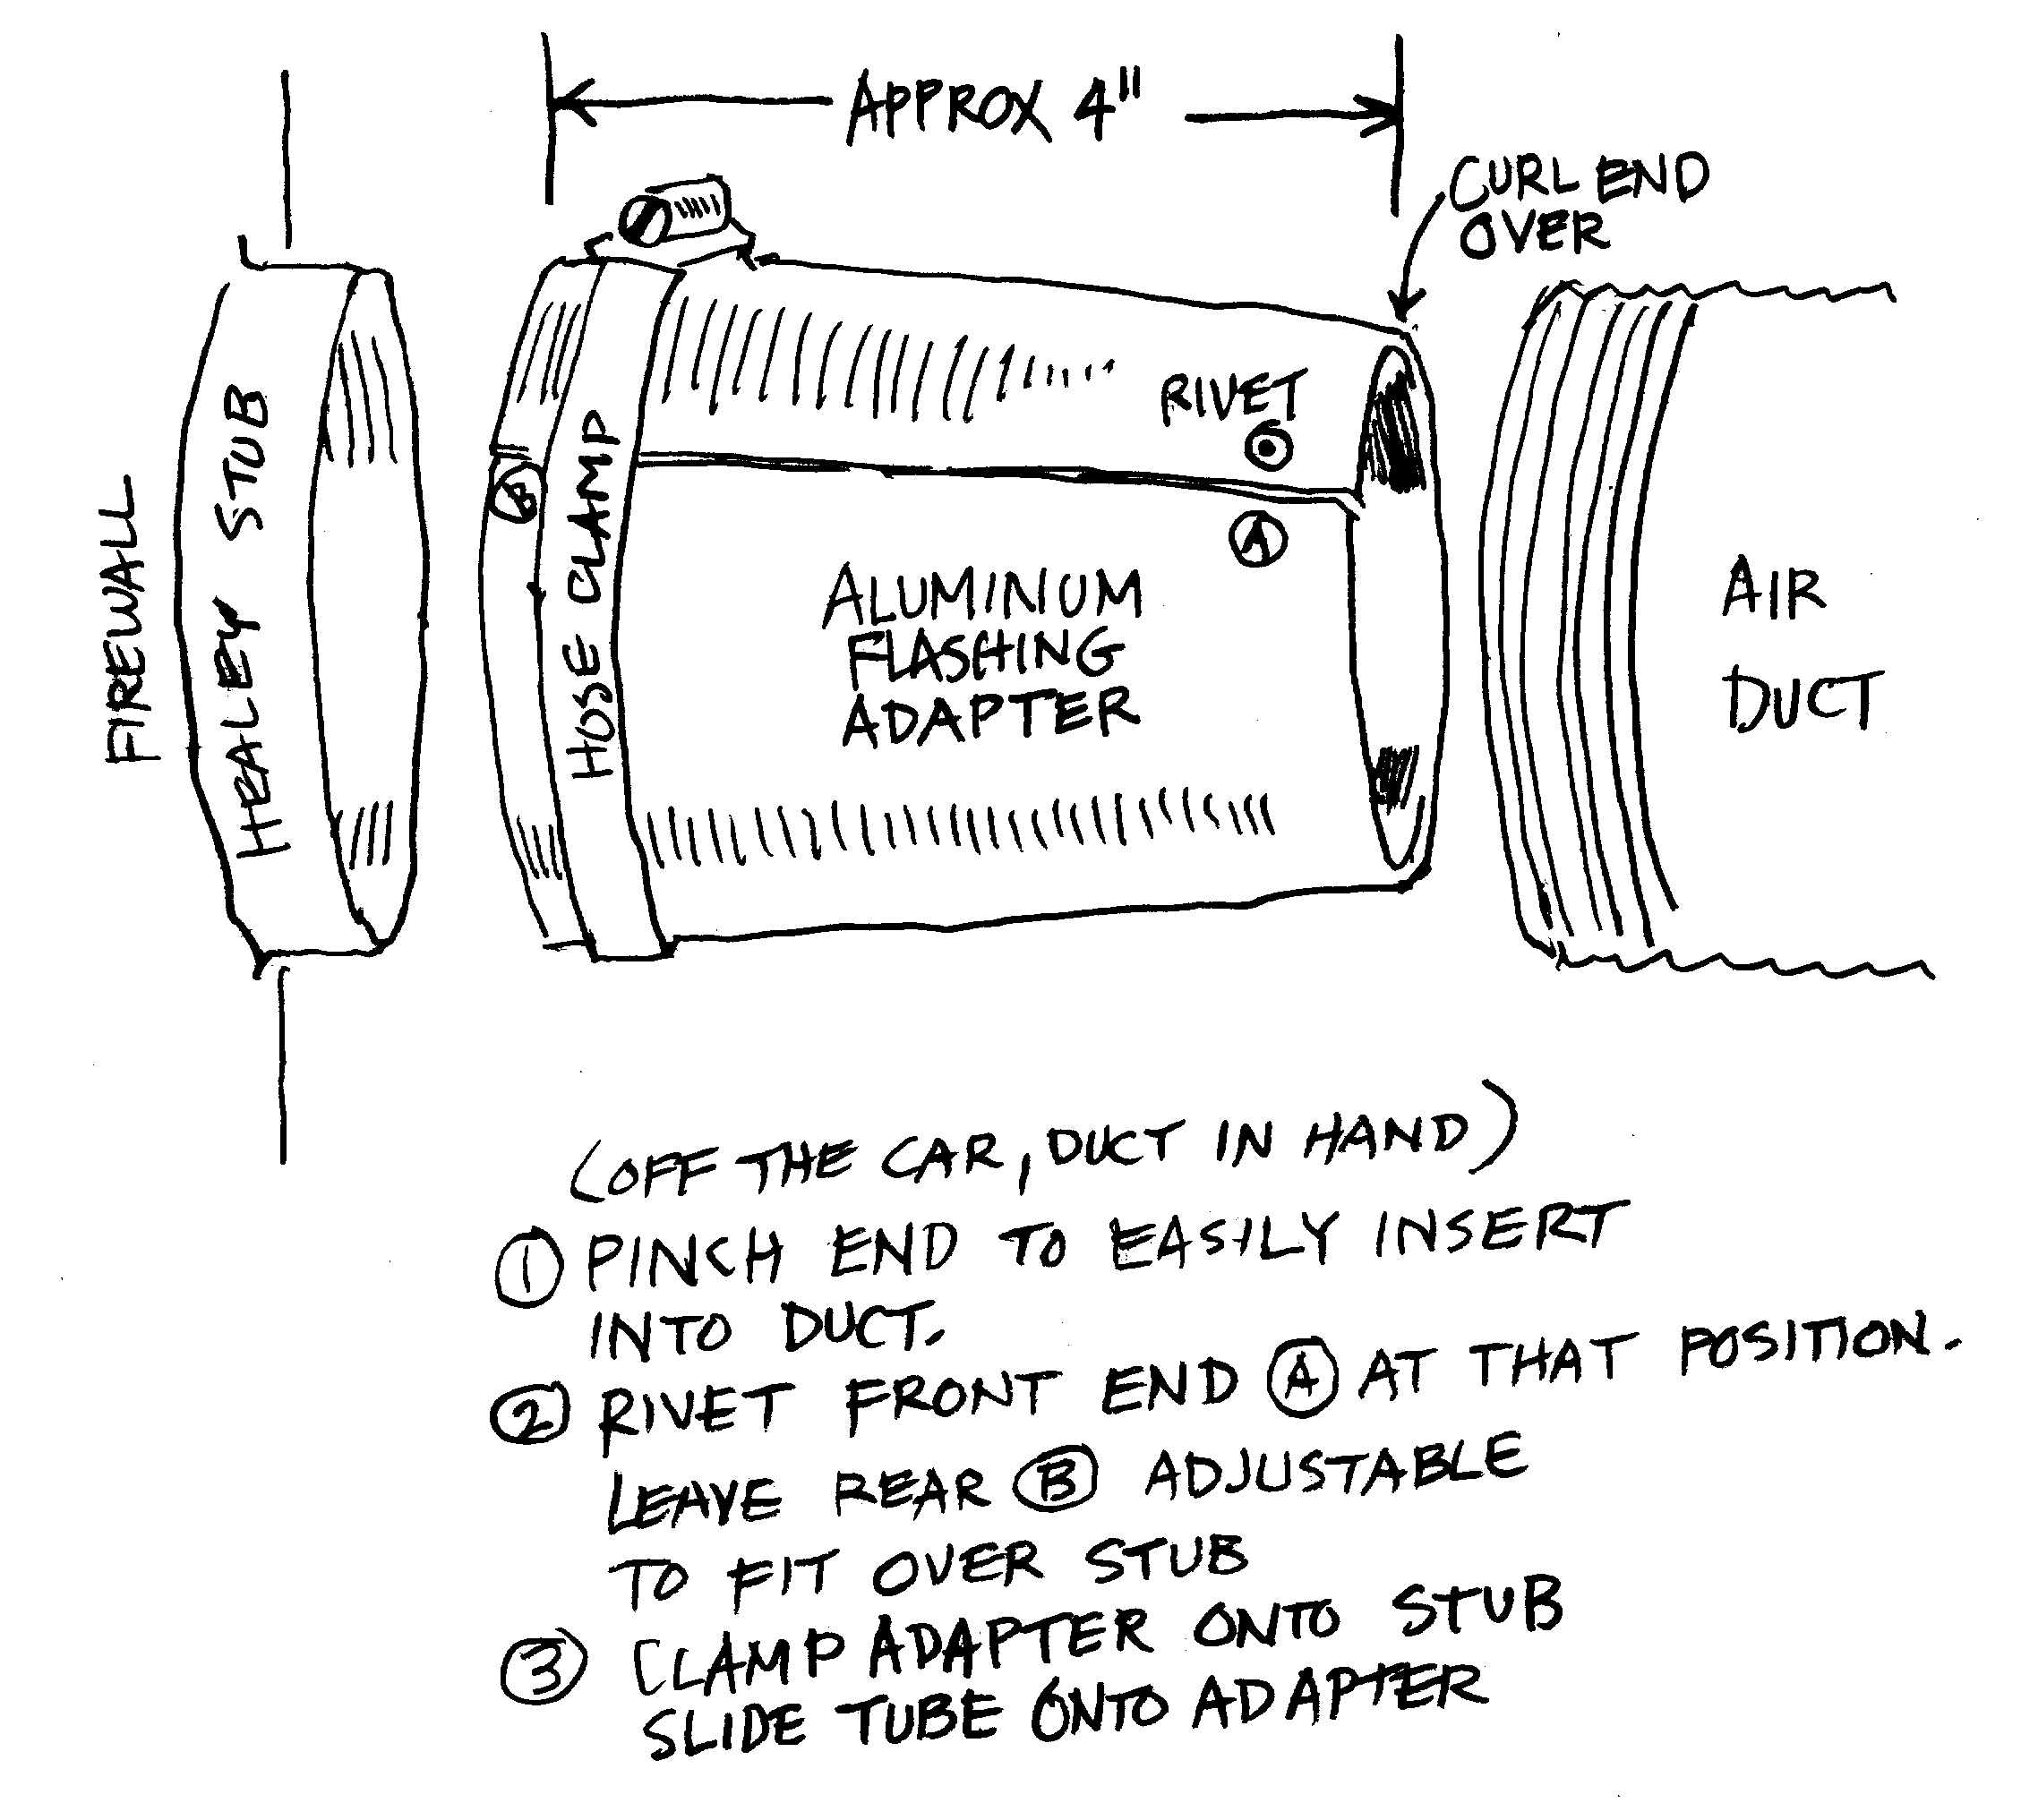 APPROX 4"
CURL END
OVER
FIREWALL
HEALEY STUB
B
HOSE CLAMP
RIVET
A
ALUMINUM
FLASHING
ADAPTER
AIR
DUCT
(OFF THE CAR, DUCT IN HAND)
1 PINCH END TO EASILY INSERT
INTO DUCT.
2 RIVET FRONT END A AT THAT POSITION.
LEAVE REAR B ADJUSTABLE
TO FIT OVER STUB
3 CLAMP ADAPTER ONTO STUB
SLIDE TUBE ONTO ADAPTER